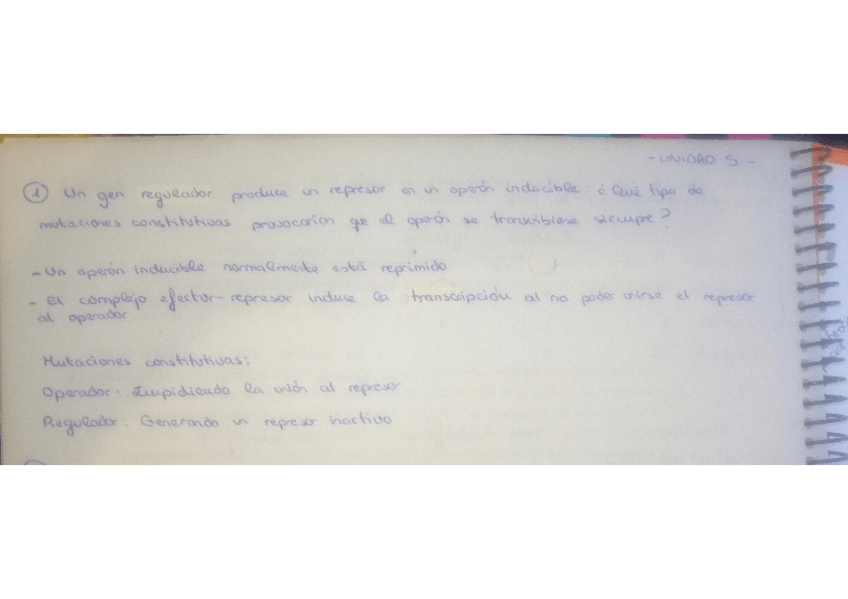 - UNIDAD 5 -
① Un gen regulador produce un represor en un operón inducible. ¿ Qué tipo de
mutaciones constitutivas provocarían que el operón se transcribiese siempre?
- Un operón inducible normalmente está reprimido
- El complejo efector-represor induce la transcripción al no poder unirse el represor
al operador.
Mutaciones constitutivas:
Operador. Impidiendo la unión al represor
Regulador. Generando un represor inactivo